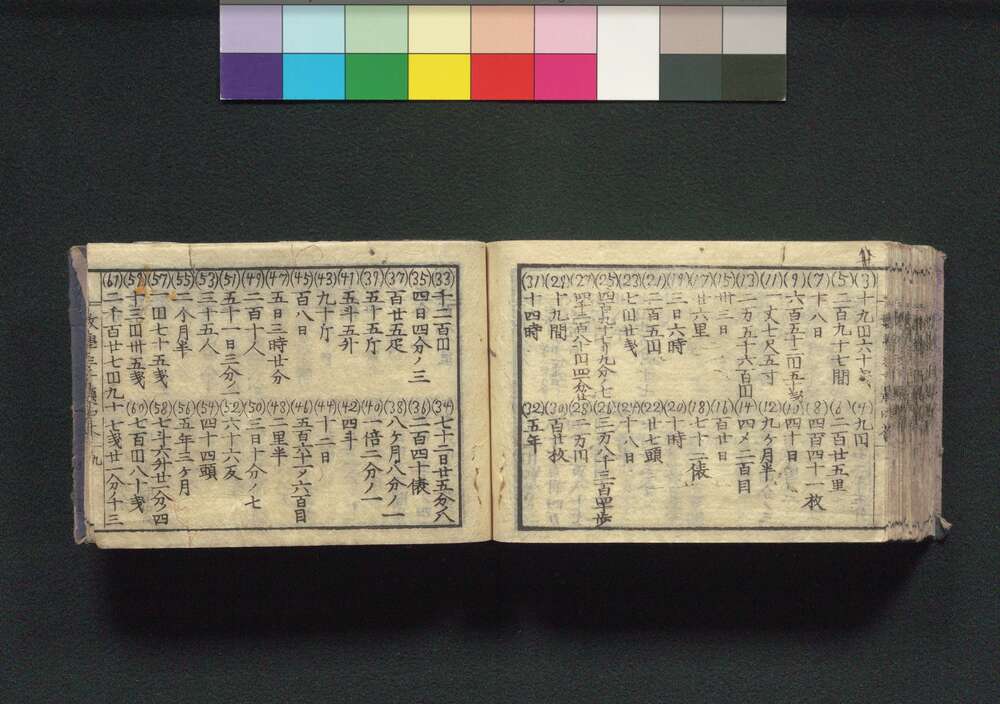 (3)十九円六十銭 (4)九円
(5)二百九十七間 (6)二百廿五里
(7)十八日 (8)四百四十一枚
(9)六百五十二円五十銭 (10)四十日
(11)一丈七尺五寸 (12)九ヶ月半
(13)二万五千六百円 (14)四〆二百目
(15)卅三日 (16)百廿日
(17)廿六里 (18)七十二俵
(19)三日六時 (20)十時
(21)二百五円 (22)廿七頭
(23)七円廿銭 (24)十八日
(25) (26)三万八千三百四十歩
(27) (28)二万円
(29)十九間 (30)百廿枚
(31)十四時 (32)五年
(33)千二百円 (34)七十二日廿五分ノ八
(35)四日四分ノ三 (36)二百四十俵
(37)百廿五疋 (38)八ヶ月八分ノ一
(39)五十五斤 (40)一倍二分ノ一
(41)五斗五升 (42)四斗
(43)九十斤 (44)十二日
(45)百八日 (46)五百六十二〆六百目
(47)五日三時廿分 (48)二里半
(49)二百十人 (50)三日十分ノ七
(51)五千一日三分ノ二 (52)六十六反
(53)三十五人 (54)四十四頭
(55)二个月半 (56)五年三ヶ月
(57)二円七十五銭 (58)七斗六升廿二分ノ四
(59)十三円卅五銭 (60)七百円八十銭
(61)二千百廿七円九十七銭廿一分ノ十三